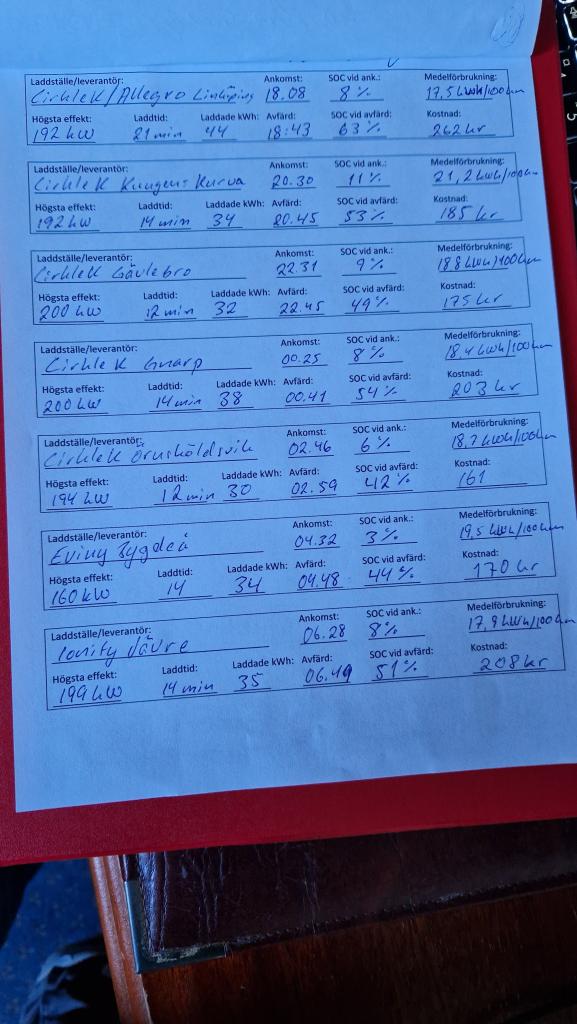 Laddställe/leverantör: Ankomst: SOC vid ank.: Medelförbrukning:
CirkleK/Allegro Linköping 18.08 8% 17,5 kWh/100km
Högsta effekt: Laddtid: Laddade kWh: Avfärd: SOC vid avfärd: Kostnad:
192 kW 21 min 44 18:43 63% 262 kr
Laddställe/leverantör: Ankomst: SOC vid ank.: Medelförbrukning:
Cirkle K Kungens Kurva 20.30 11% 21,2 kWh/100km
Högsta effekt: Laddtid: Laddade kWh: Avfärd: SOC vid avfärd: Kostnad:
192 kW 14 min 34 20.45 53% 185 kr
Laddställe/leverantör: Ankomst: SOC vid ank.: Medelförbrukning:
CirkleK Gävlebro 22.31 9% 18,8 kWh/100km
Högsta effekt: Laddtid: Laddade kWh: Avfärd: SOC vid avfärd: Kostnad:
200 kW 12 min 32 22.45 49% 175 kr
Laddställe/leverantör: Ankomst: SOC vid ank.: Medelförbrukning:
Cirkle K Gnarp 00.25 8% 18,4 kWh/100km
Högsta effekt: Laddtid: Laddade kWh: Avfärd: SOC vid avfärd: Kostnad:
200 kW 14 min 38 00.41 54% 203 kr
Laddställe/leverantör: Ankomst: SOC vid ank.: Medelförbrukning:
CirkleK Örnsköldsvik 02.46 6% 18,7 kWh/100km
Högsta effekt: Laddtid: Laddade kWh: Avfärd: SOC vid avfärd: Kostnad:
194 kW 12 min 30 02.59 42% 161
Laddställe/leverantör: Ankomst: SOC vid ank.: Medelförbrukning:
Eviny Bygdeå 04.32 3% 19,5 kWh/100km
Högsta effekt: Laddtid: Laddade kWh: Avfärd: SOC vid avfärd: Kostnad:
160 kW 14 34 04.48 44% 170 kr
Laddställe/leverantör: Ankomst: SOC vid ank.: Medelförbrukning:
Ionity Jävre 06.28 8% 17,9 kWh/100km
Högsta effekt: Laddtid: Laddade kWh: Avfärd: SOC vid avfärd: Kostnad:
199 kW 14 min 35 06.49 51% 208 kr